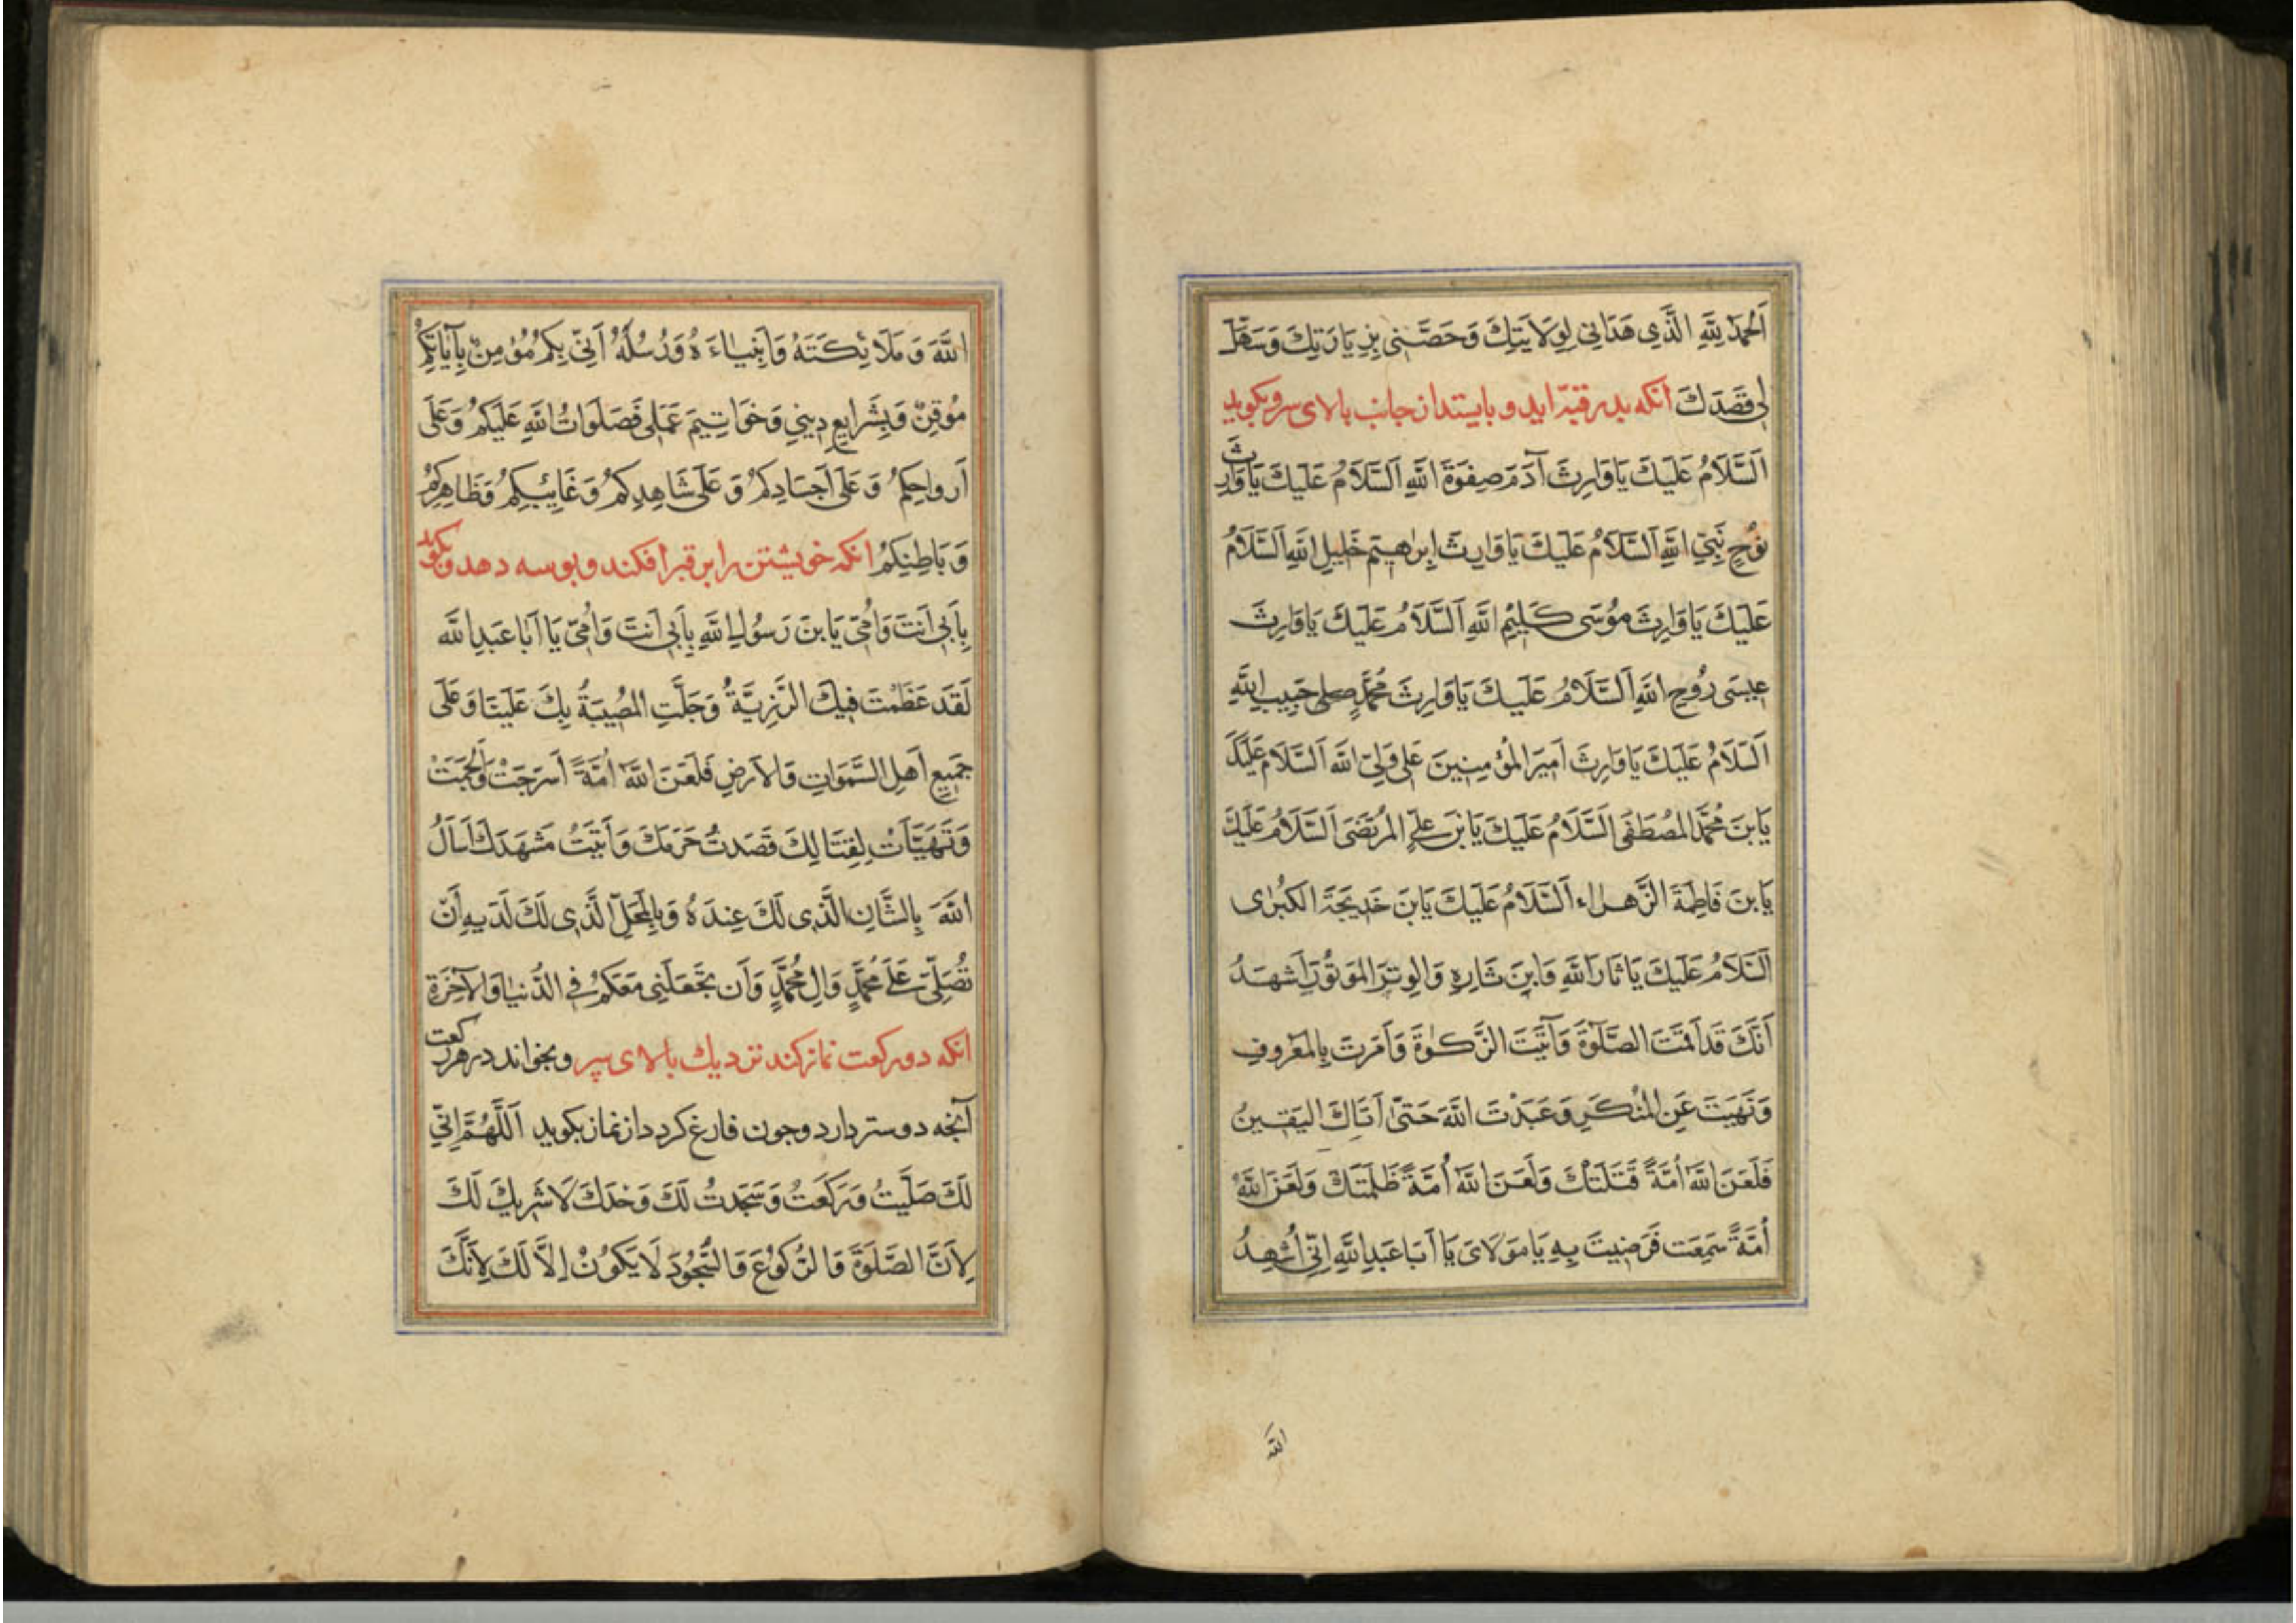 اَلْحَمْدُ لِلّٰهِ الَّذِي هَدَانِي لِوِلَايَتِكَ وَخَصَّنِي بِزِيَارَتِكَ وَسَهَّلَ
لِي قَصْدَكَ انكه بدر قبه ايد و بايستد از جانب بالاى سر و بكويد
اَلسَّلَامُ عَلَيْكَ يَا وَارِثَ آدَمَ صِفْوَةِ اللّٰهِ اَلسَّلَامُ عَلَيْكَ يَا وَارِثَ
نُوحٍ نَبِيِّ اللّٰهِ اَلسَّلَامُ عَلَيْكَ يَا وَارِثَ اِبْرٰهِيمَ خَلِيلِ اللّٰهِ اَلسَّلَامُ
عَلَيْكَ يَا وَارِثَ مُوسَى كَلِيمِ اللّٰهِ اَلسَّلَامُ عَلَيْكَ يَا وَارِثَ
عِيسَى رُوحِ اللّٰهِ اَلسَّلَامُ عَلَيْكَ يَا وَارِثَ مُحَمَّدٍ صلى حَبِيبِ اللّٰهِ
اَلسَّلَامُ عَلَيْكَ يَا وَارِثَ اَمِيرَ الْمُؤْمِنِينَ عَلِي وَلِيِّ اللّٰهِ اَلسَّلَامُ عَلَيْكَ
يَا بْنَ مُحَمَّدٍ الْمُصْطَفَى اَلسَّلَامُ عَلَيْكَ يَا بْنَ عَلِيٍّ الْمُرْتَضَى اَلسَّلَامُ عَلَيْكَ
يَا بْنَ فَاطِمَةَ الزَّهْرَاءِ اَلسَّلَامُ عَلَيْكَ يَا بْنَ خَدِيجَةَ الْكُبْرٰى
اَلسَّلَامُ عَلَيْكَ يَا ثَارَ اللّٰهِ وَابْنَ ثَارِهِ وَالْوِتْرَ الْمَوْتُورَ اَشْهَدُ
اَنَّكَ قَدْ اَقَمْتَ الصَّلٰوةَ وَآتَيْتَ الزَّكٰوةَ وَاَمَرْتَ بِالْمَعْرُوفِ
وَنَهَيْتَ عَنِ الْمُنْكَرِ وَعَبَدْتَ اللّٰهَ حَتّٰى اَتَاكَ الْيَقِينُ
فَلَعَنَ اللّٰهُ اُمَّةً قَتَلَتْكَ وَلَعَنَ اللّٰهُ اُمَّةً ظَلَمَتْكَ وَلَعَنَ اللّٰهُ
اُمَّةً سَمِعَتْ فَرَضِيَتْ بِهِ يَا مَوْلَايَ يَا اَبَا عَبْدِ اللّٰهِ اِنِّي اُشْهِدُ
اللّٰه
اللّٰهَ وَمَلَائِكَتَهُ وَاَنْبِيَاءَهُ وَرُسُلَهُ اَنِّي بِكُمْ مُؤْمِنٌ بِآيَاتِكُمْ
مُوقِنٌ وَبِشَرَايِعِ دِينِي وَخَوَاتِيمَ عَمَلِي فَصَلَوَاتُ اللّٰهِ عَلَيْكُمْ وَعَلَى
اَرْوَاحِكُمْ وَعَلَى اَجْسَادِكُمْ وَعَلَى شَاهِدِكُمْ وَغَائِبِكُمْ وَظَاهِرِكُمْ
وَبَاطِنِكُمْ انكه خويشتن را بر قبر افكند و بوسه دهد و بكويد
بِاَبِي اَنْتَ وَاُمِّي يَا بْنَ رَسُولِ اللّٰهِ بِاَبِي اَنْتَ وَاُمِّي يَا اَبَا عَبْدِ اللّٰه
لَقَدْ عَظُمَتْ فِيكَ الرَّزِيَّةُ وَجَلَّتِ الْمُصِيبَةُ بِكَ عَلَيْنَا وَعَلَى
جَمِيعِ اَهْلِ السَّمٰوَاتِ وَالْاَرْضِ فَلَعَنَ اللّٰهُ اُمَّةً اَسْرَجَتْ وَاَلْجَمَتْ
وَتَهَيَّأَتْ لِقِتَالِكَ قَصَدْتُ حَرَمَكَ وَاَتَيْتُ مَشْهَدَكَ اَسْاَلُ
اللّٰهَ بِالشَّانِ الَّذِي لَكَ عِنْدَهُ وَبِالْمَحَلِّ الَّذِي لَكَ لَدَيْهِ اَنْ
تُصَلِّيَ عَلَى مُحَمَّدٍ وَالِ مُحَمَّدٍ وَاَنْ تَجْعَلَنِي مَعَكُمْ فِي الدُّنْيَا وَالْآخِرَةِ
انكه دو ركعت نماز كند نزديك بالاى سر و بخواند در هر ركعت
آنچه دوستر دارد وچون فارغ كردد از نماز بكويد اَللّٰهُمَّ اِنِّي
لَكَ صَلَّيْتُ وَرَكَعْتُ وَسَجَدْتُ لَكَ وَحْدَكَ لَا شَرِيكَ لَكَ
لِاَنَّ الصَّلٰوةَ وَالرُّكُوعَ وَالسُّجُودَ لَا يَكُونُ اِلَّا لَكَ لِاَنَّكَ